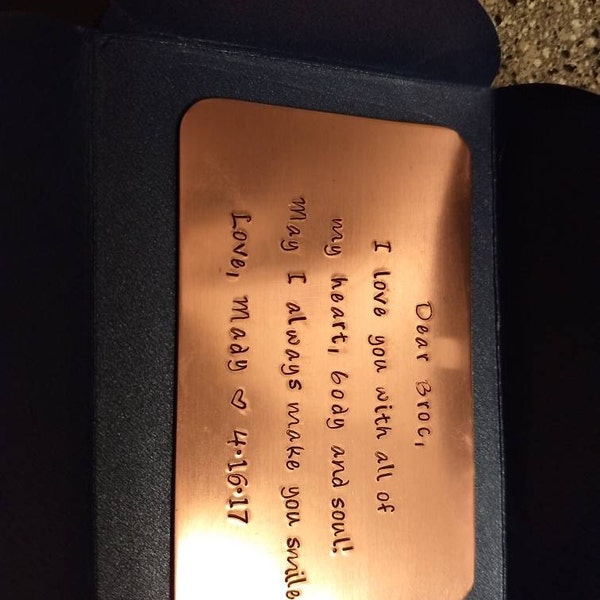 Dear Broc,
I love you with all of
my heart, body and soul!
May I always make you smile
Love, Mady ♡ 4·16·17